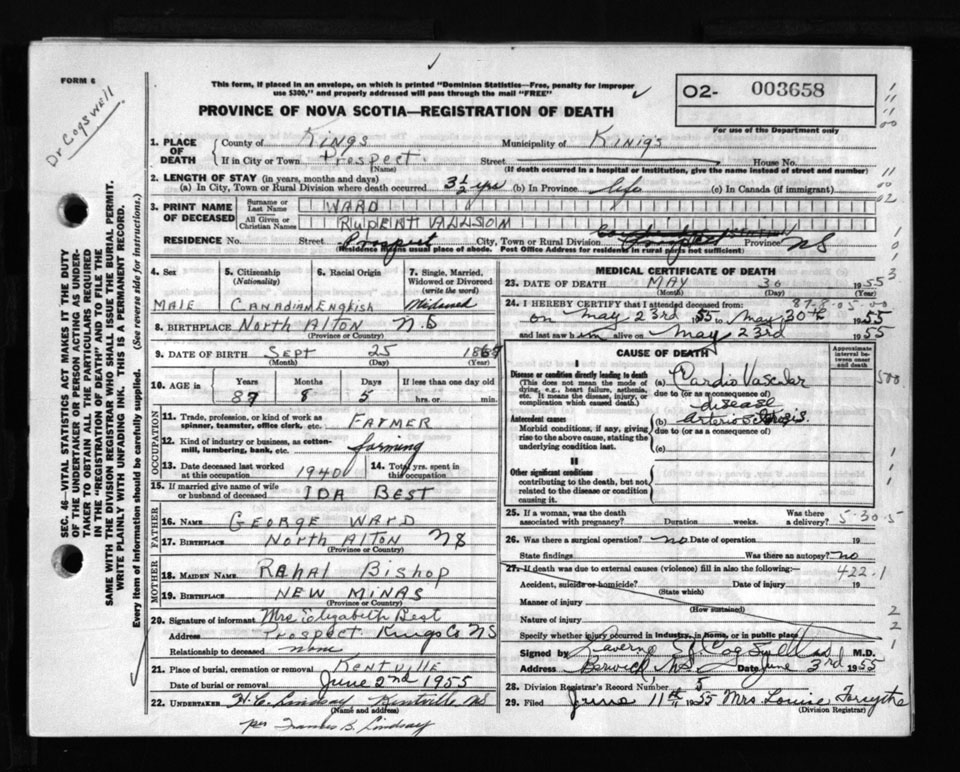 FORM 6
Dr Cogswell
This form, if placed in an envelope, on which is printed "Dominion Statistics—Free, penalty for improper
use $300," and properly addressed will pass through the mail "FREE"
PROVINCE OF NOVA SCOTIA—REGISTRATION OF DEATH
O2- 003658
For use of the Department only
SEC. 46—VITAL STATISTICS ACT MAKES IT THE DUTY
OF THE UNDERTAKER OR PERSON ACTING AS UNDER-
TAKER TO OBTAIN ALL THE PARTICULARS REQUIRED
IN THE "REGISTRATION OF DEATH" AND TO FILE THE
SAME WITH THE DIVISION REGISTRAR WHO SHALL ISSUE THE BURIAL PERMIT.
WRITE PLAINLY WITH UNFADING INK. THIS IS A PERMANENT RECORD.
Every item of information should be carefully supplied. (See reverse side for instructions.)
1. PLACE OF DEATH County of Kings Municipality of Kinigs
If in City or Town Prospect. Street House No.
(Name) (If death occurred in a hospital or institution, give the name instead of street and number)
2. LENGTH OF STAY (in years, months and days)
(a) In City, Town or Rural Division where death occurred 3½ yrs (b) In Province life (c) In Canada (if immigrant)
3. PRINT NAME OF DECEASED Surname or Last Name WARD
All Given or Christian Names RUPERT ALLSOM
RESIDENCE No. Street Prospect City, Town or Rural Division Province NS
(Residence means usual place of abode. Post Office Address for residents in rural parts not sufficient)
4. Sex 5. Citizenship (Nationality) 6. Racial Origin 7. Single, Married, Widowed or Divorced (write the word)
MALE CANADIAN ENGKISH Widowed
8. BIRTHPLACE North Alton N.S
(Province or Country)
9. DATE OF BIRTH SEPT 25 1867
(Month) (Day) (Year)
10. AGE in Years Months Days If less than one day old
87 8 5 hrs. or min.
OCCUPATION
11. Trade, profession, or kind of work as
spinner, teamster, office clerk, etc. FARMER
12. Kind of industry or business, as cotton-
mill, lumbering, bank, etc. farming
13. Date deceased last worked at this occupation 1940 14. Total yrs. spent in this occupation
15. If married give name of wife
or husband of deceased IDA BEST
FATHER
16. NAME GEORGE WARD
17. BIRTHPLACE North Alton NS
(Province or Country)
MOTHER
18. MAIDEN NAME RAHAL Bishop
19. BIRTHPLACE NEW MINAS
(Province or Country)
20. Signature of informant Mrs Elizabeth Best
Address Prospect Kings Co NS
Relationship to deceased none
21. Place of burial, cremation or removal KENTVILLE
Date of burial or removal June 2nd 1955
22. UNDERTAKER H. C. Lindsay Kentville NS
(Name and address)
per Frances B. Lindsay
MEDICAL CERTIFICATE OF DEATH
23. DATE OF DEATH MAY 30 1955
(Month) (Day) (Year)
24. I HEREBY CERTIFY that I attended deceased from: 87-8-05-00
on May 23rd 1955 to May 30th 1955
and last saw him alive on May 23rd 1955
CAUSE OF DEATH
Approximate interval between onset and death
I
Disease or condition directly leading to death
(This does not mean the mode of
dying, e.g., heart failure, asthenia,
etc. It means the disease, injury, or
complication which caused death.)
(a) Cardio Vascular disease
due to (or as a consequence of)
Antecedent causes
Morbid conditions, if any, giving
rise to the above cause, stating the
underlying condition last.
(b) Arterio Sclerosis.
due to (or as a consequence of)
(c)
II
Other significant conditions
contributing to the death, but not
related to the disease or condition
causing it.
25. If a woman, was the death associated with pregnancy? Duration weeks. Was there a delivery? 5-30-5
26. Was there a surgical operation? no Date of operation 19
State findings Was there an autopsy? no
27. If death was due to external causes (violence) fill in also the following: 422.1
Accident, suicide or homicide? Date of injury 19
(State which)
Manner of injury
(How sustained)
Nature of injury
Specify whether injury occurred in Industry, in Home, or in public place
Signed by Laverne Cogswell M.D.
Address Berwick N.S. Date June 3rd 1955
28. Division Registrar's Record Number 5
29. Filed June 11th 1955 Mrs Louise Forsythe
(Division Registrar)